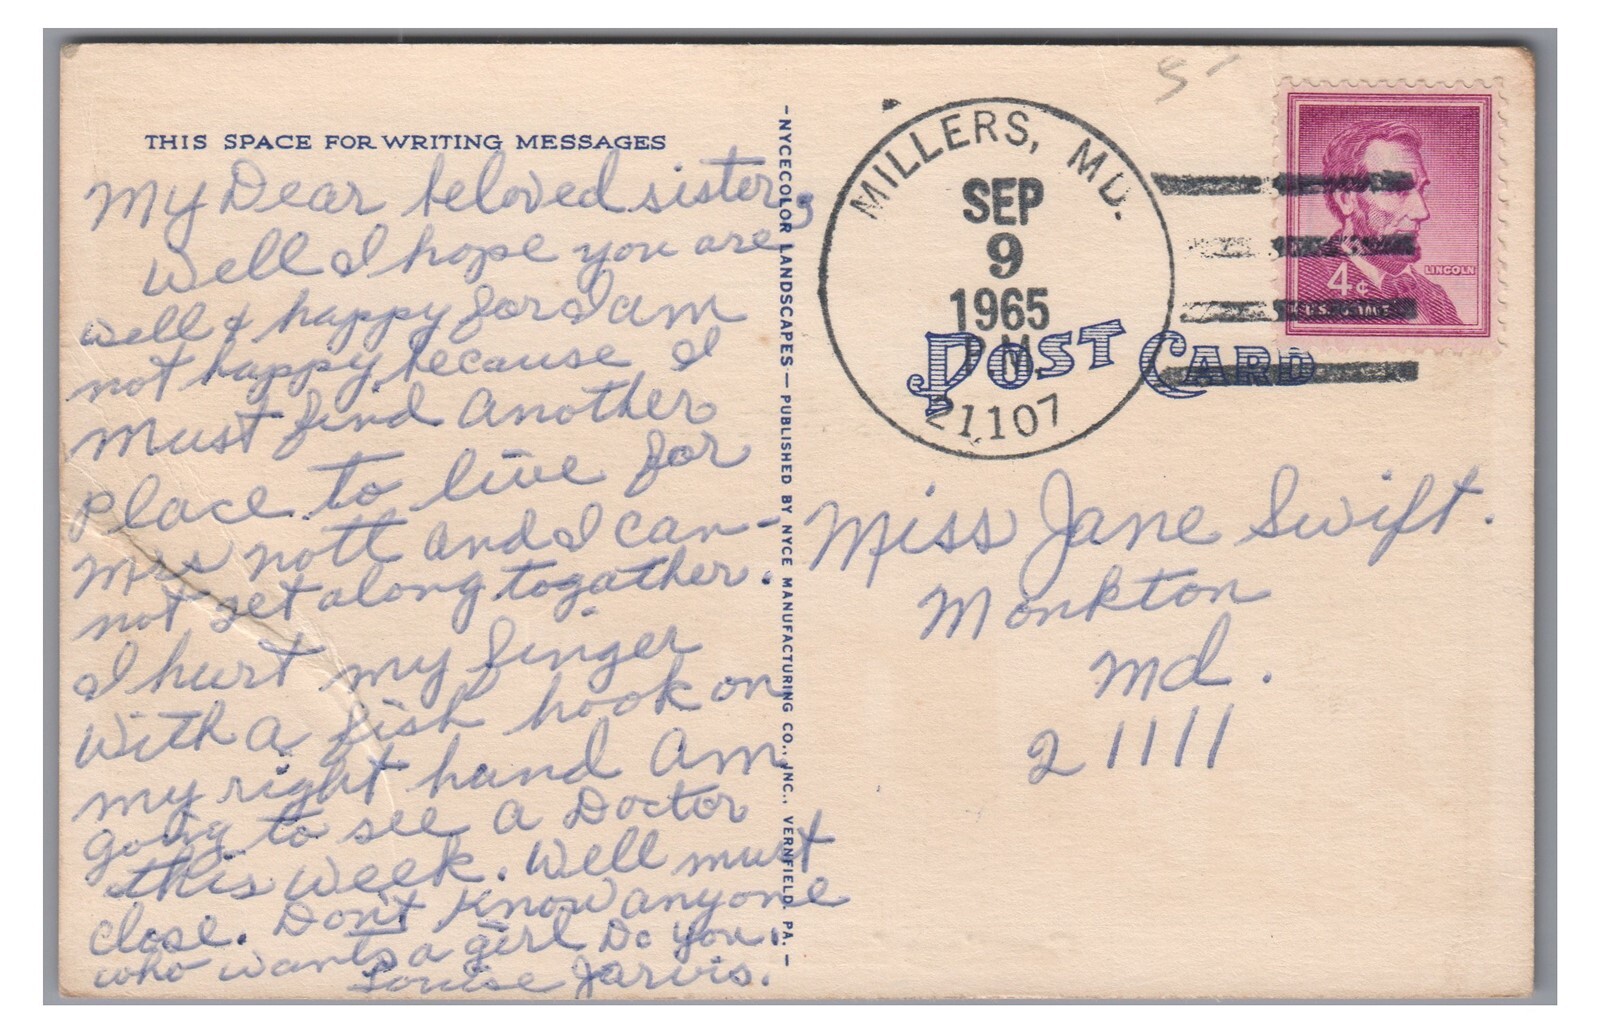 THIS SPACE FOR WRITING MESSAGES
My Dear beloved sister,
Well I hope you are
well & happy for I am
not happy because I
Must find Another
place to live for
Mrs nott and I can-
not get along togather.
I hurt my finger
With A fish hook on
my right hand Am
going to see A Doctor
this week. Well must
close. Don't Know anyone
who wants a girl Do you.
Louise Jarvis.
-NYCECOLOR LANDSCAPES—PUBLISHED BY NYCE MANUFACTURING CO., INC., VERNFIELD, PA.-
MILLERS, MD.
SEP
9
1965
PM
21107
5
LINCOLN
4¢
U.S. POSTAGE
POST CARD
Miss Jane Swift.
Monkton
Md.
21111